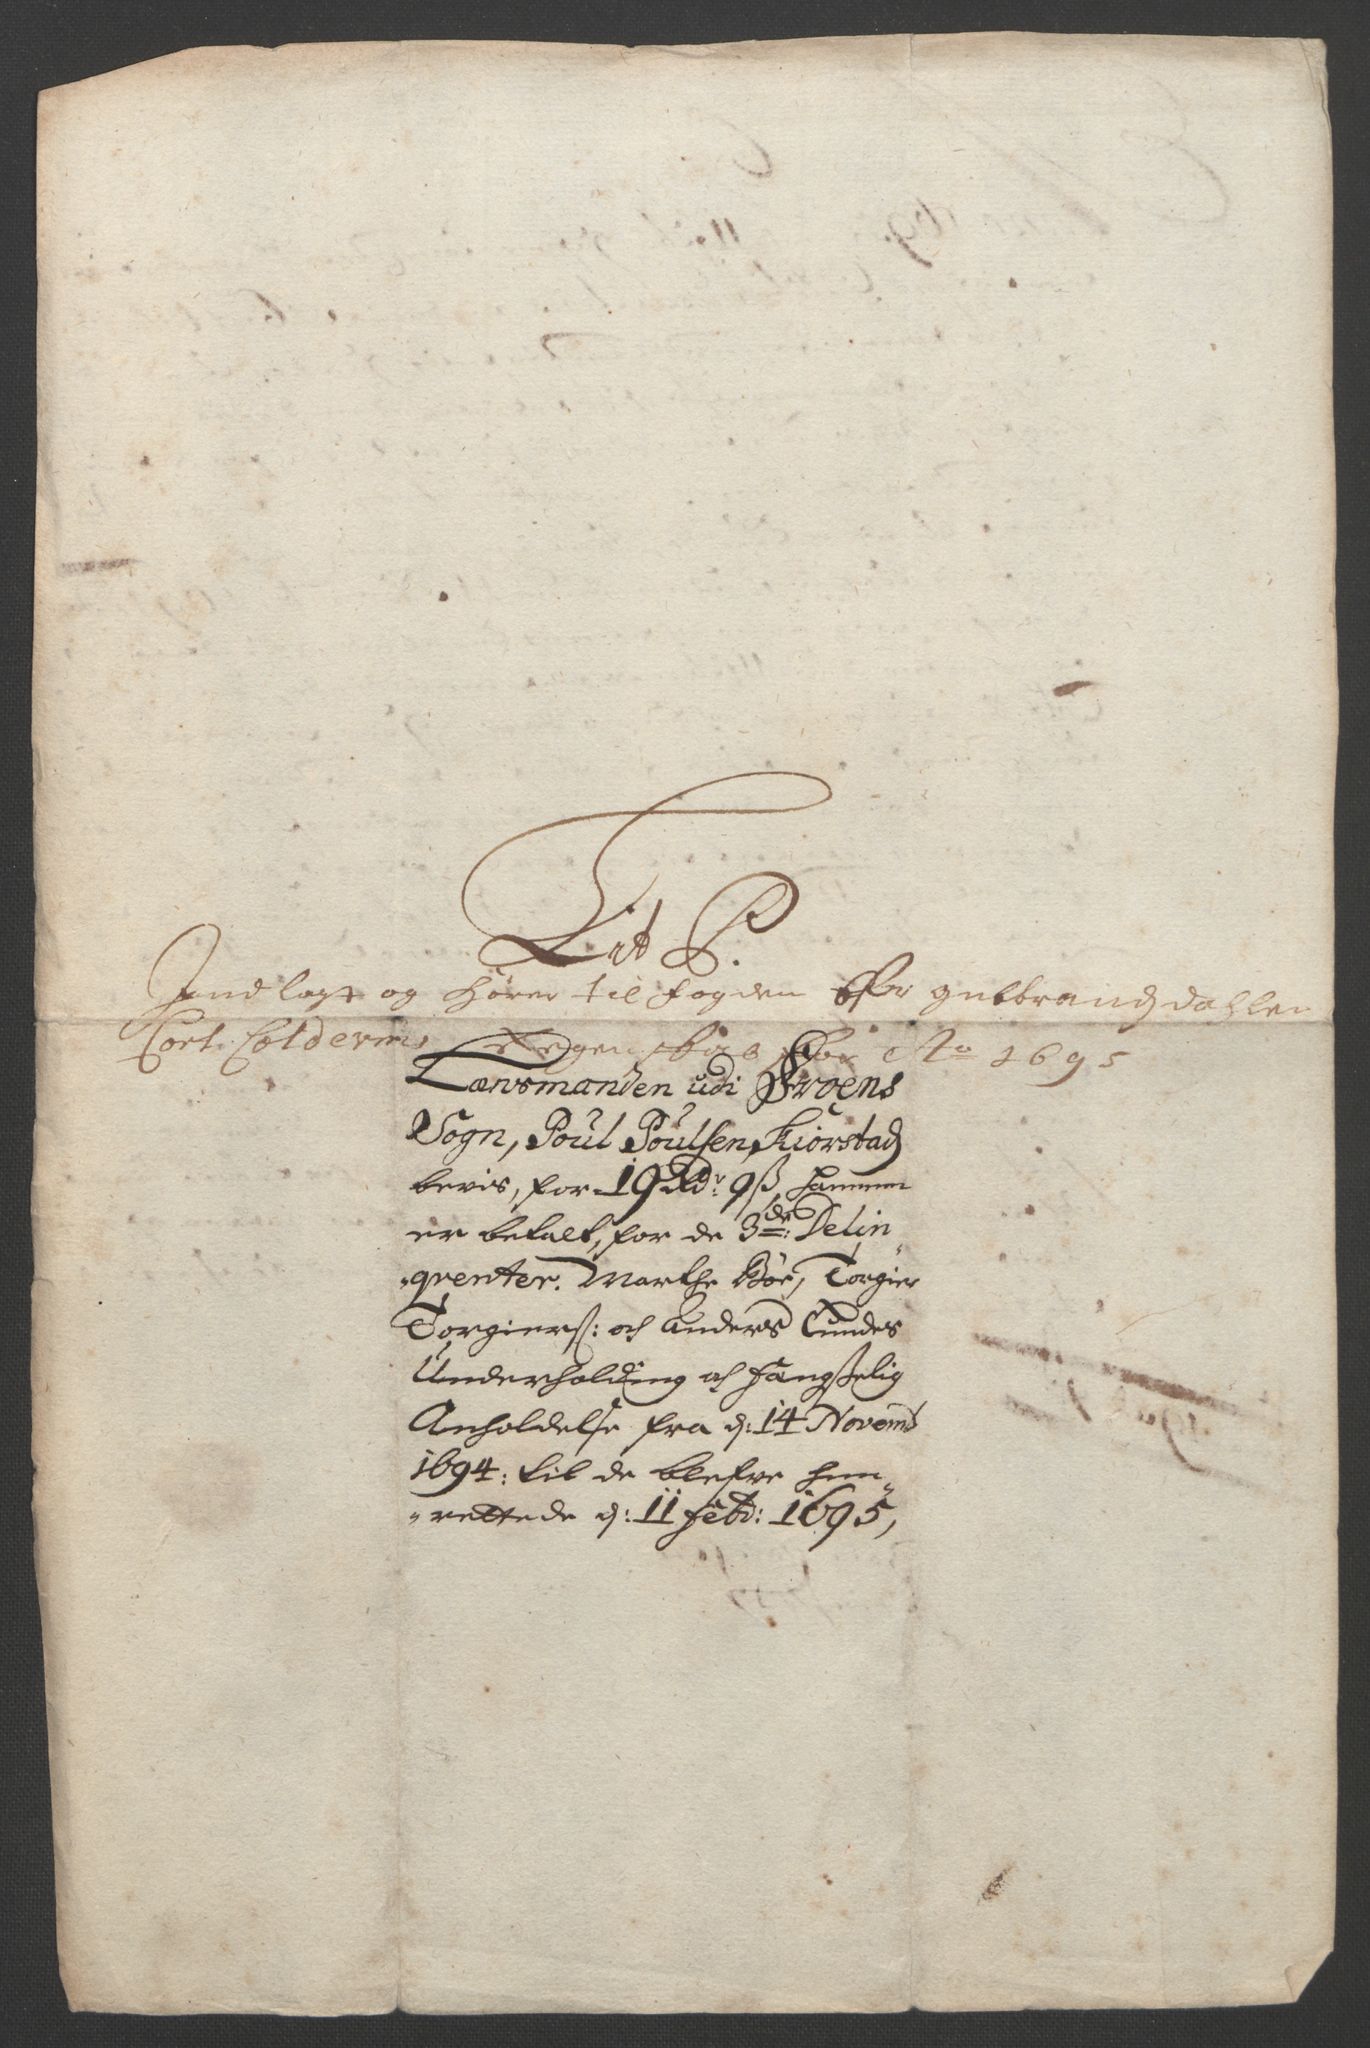 Lit P.
Indlagt og hører til fogden ofver gulbrandsdahlen
Cort Coldevins Regenskab for Ao 1695
Lænsmanden udi Froens
Sogn, Poul Poulsen Kiorstad
bevis, for 19 Rdr 9 ß, hannem
er betalt, for de 3de: Delin„
„qventer. Marthe Böe, Torgier
Torgierß: och Anders Lundes
Underholding og fangßelig
Anholdelse fra d: 14 Novemb
1694: til de blefve hen„
„rettede d: 11 feb: 1695,